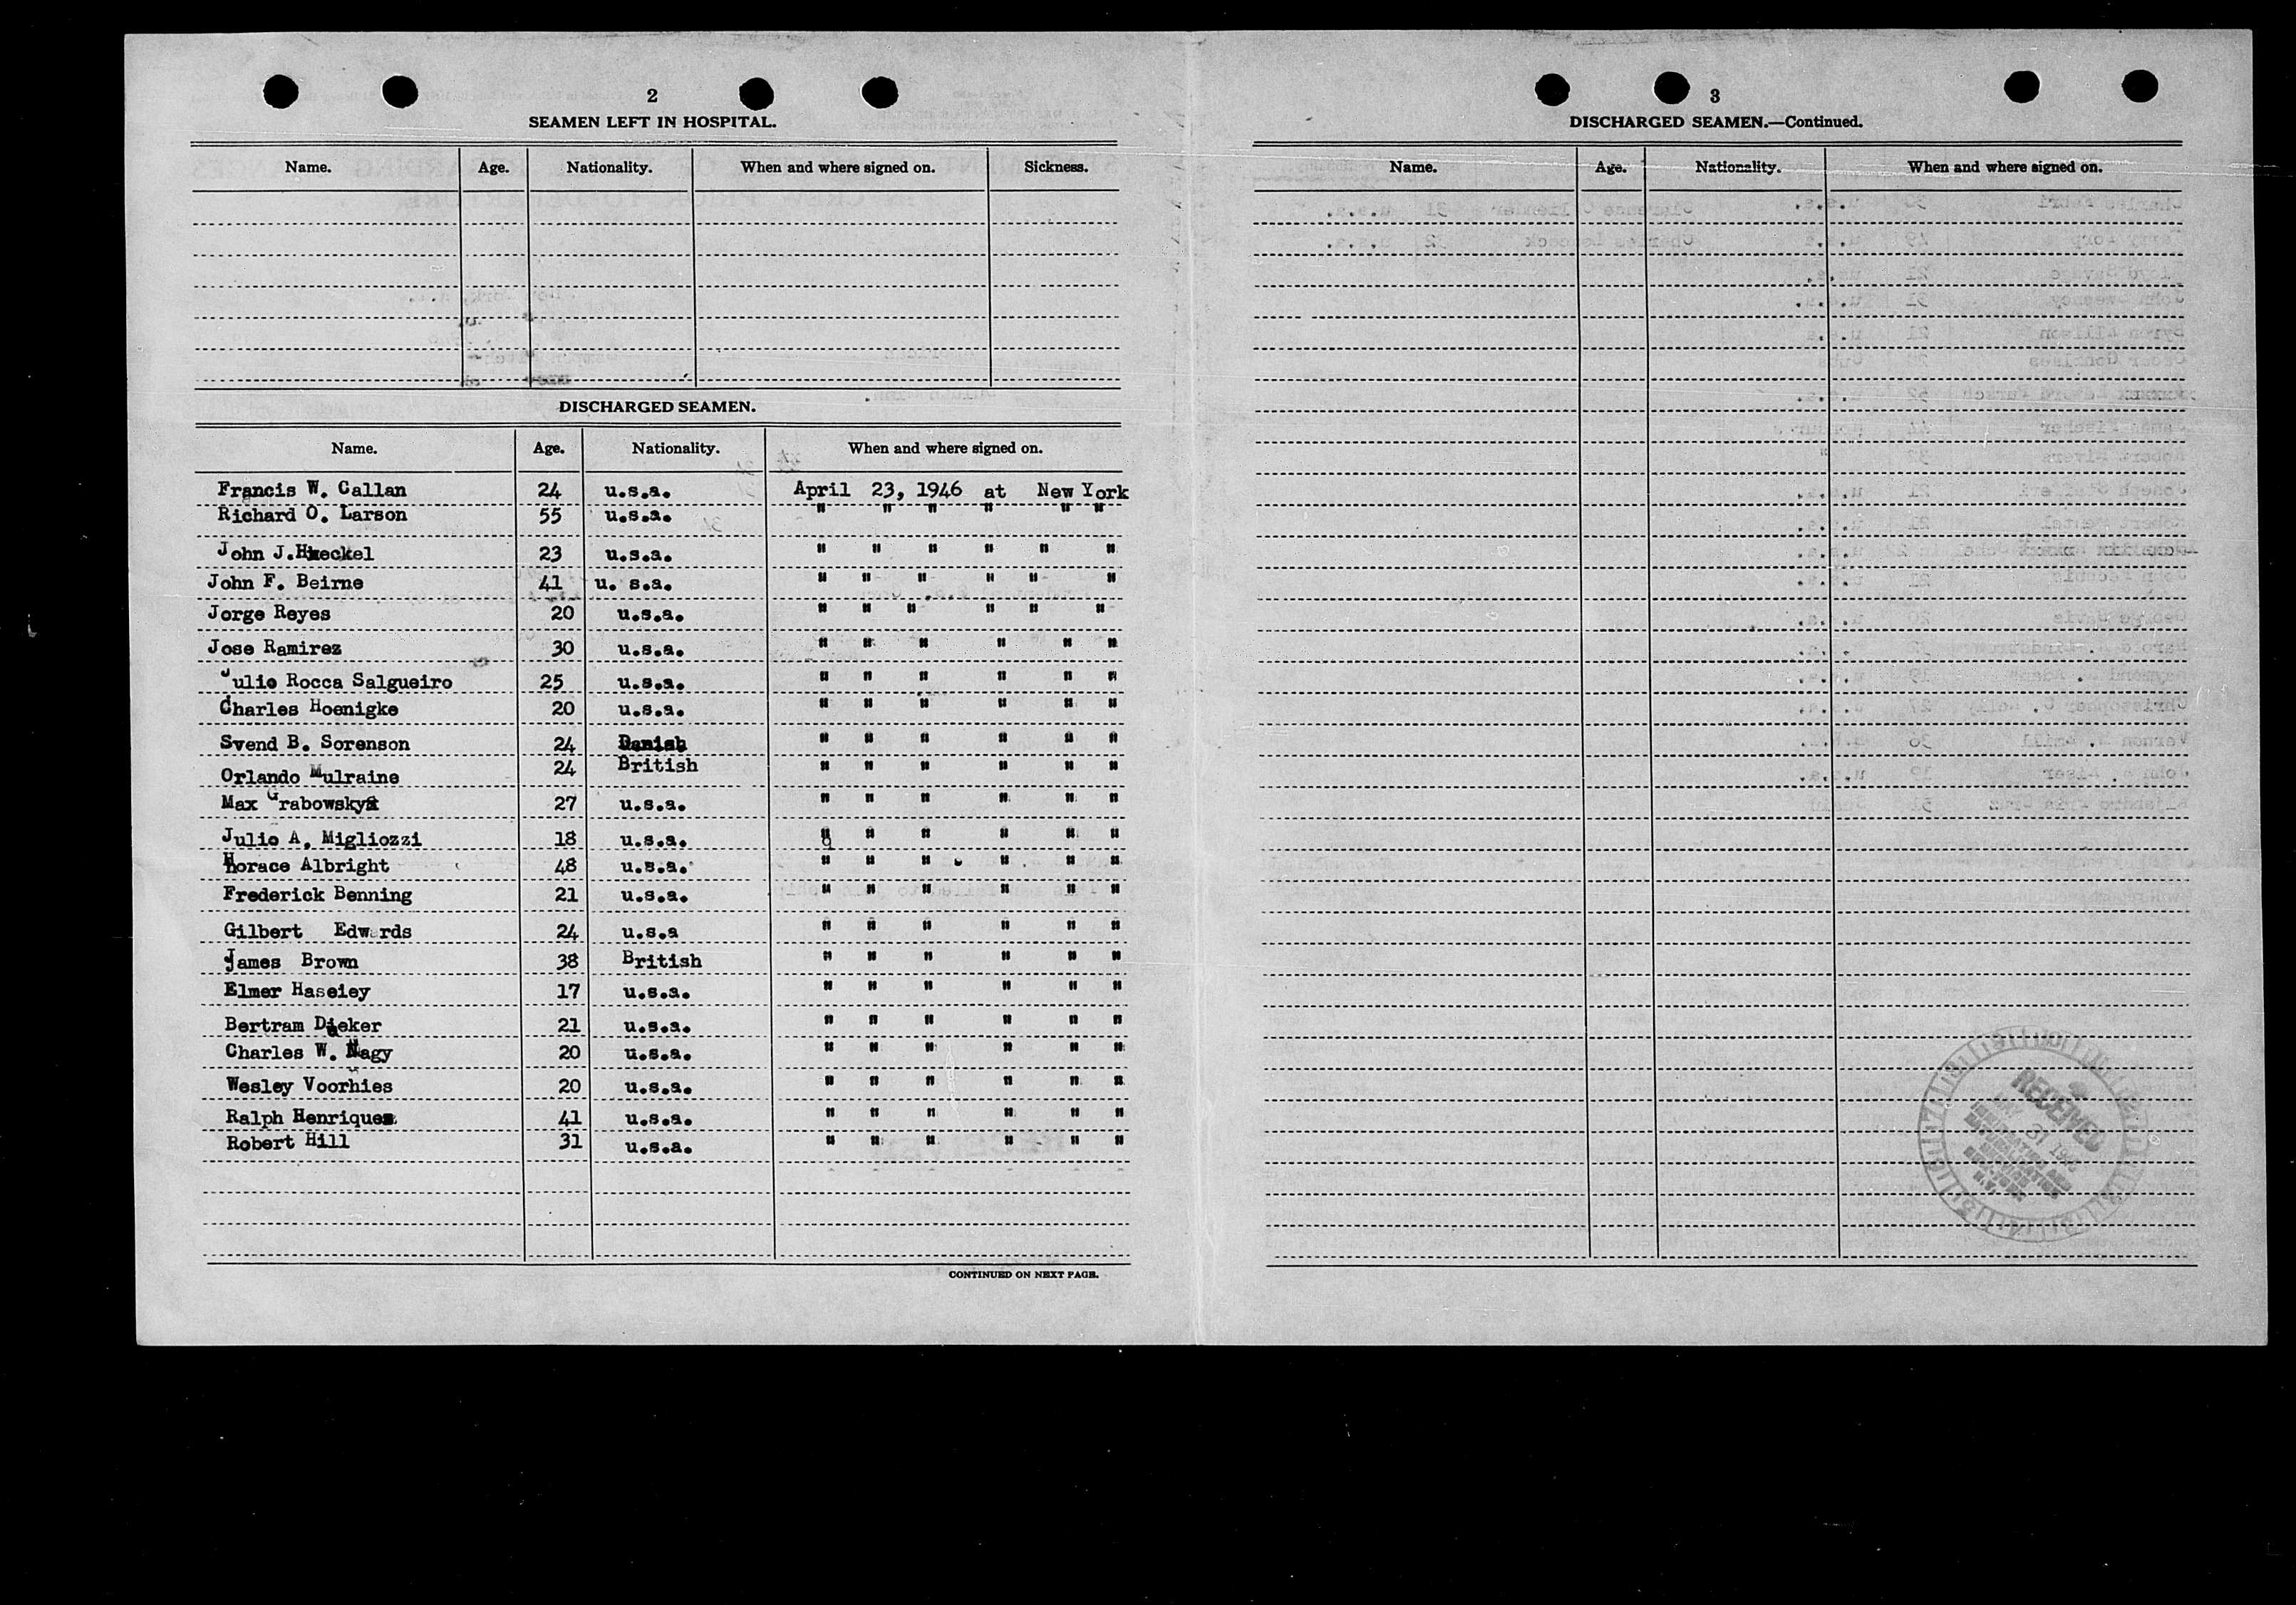 2
SEAMEN LEFT IN HOSPITAL.
Name. Age. Nationality. When and where signed on. Sickness.
DISCHARGED SEAMEN.
Name. Age. Nationality. When and where signed on.
Francis W. Callan 24 u.s.a. April 23, 1946 at New York
Richard O. Larson 55 u.s.a. " " " " " "
John J. 23 u.s.a. " " " " " "
John F. Beirne 41 u. s.a. " " " " " "
Jorge Reyes 20 u.s.a. " " " " " "
Jose Ramirez 30 u.s.a. " " " " " "
Julio Rocca Salgueiro 25 u.s.a. " " " " " "
Charles Hoenigke 20 u.s.a. " " " " " "
Svend B. Sorenson 24 Danish " " " " " "
Orlando Mulraine 24 British " " " " " "
Max Grabowsky 27 u.s.a. " " " " " "
Julio A. Migliozzi 18 u.s.a. " " " " " "
Horace Albright 48 u.s.a. " " " " " "
Frederick Benning 21 u.s.a. " " " " " "
Gilbert Edwards 24 u.s.a " " " " " "
James Brown 38 British " " " " " "
Elmer Haseiey 17 u.s.a. " " " " " "
Bertram 21 u.s.a. " " " " " "
Charles W. Nagy 20 u.s.a. " " " " " "
Wesley Voorhies 20 u.s.a. " " " " " "
Ralph Henriques 41 u.s.a. " " " " " "
Robert Hill 31 u.s.a. " " " " " "
CONTINUED ON NEXT PAGE.
3
DISCHARGED SEAMEN.—Continued.
Name. Age. Nationality. When and where signed on.
RECEIVED
31